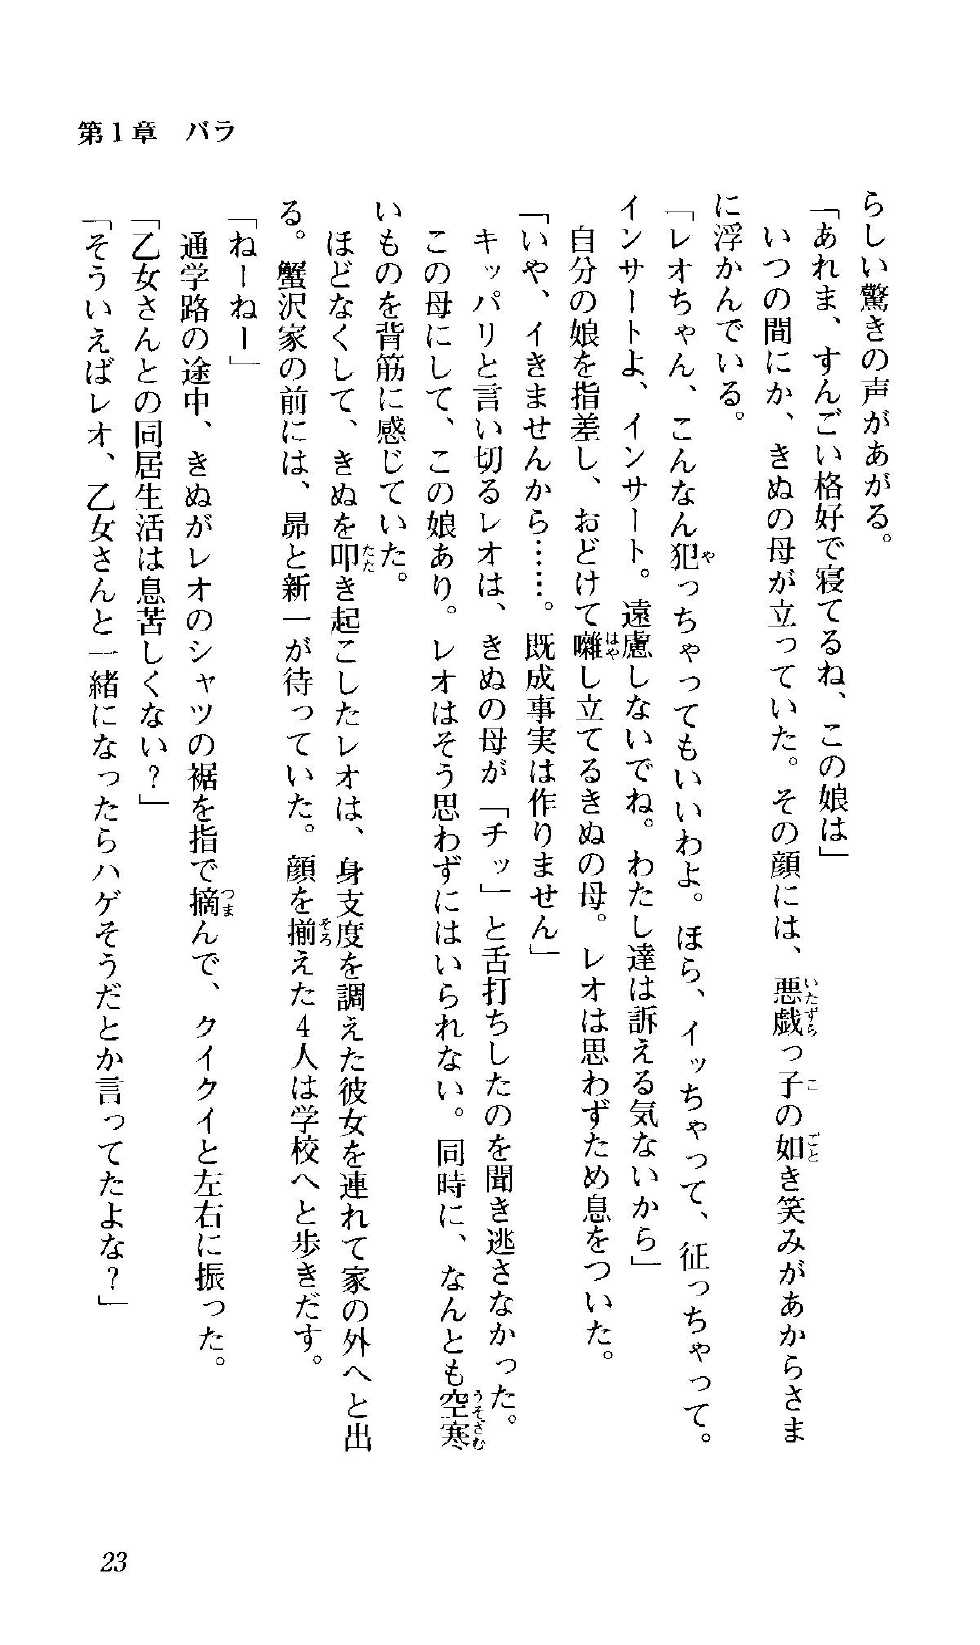 第1章　バラ
らしい驚きの声があがる。
「あれま、すんごい格好で寝てるね、この娘は」
いつの間にか、きぬの母が立っていた。その顔には、悪戯っ子の如き笑みがあからさま
に浮かんでいる。
「レオちゃん、こんなん犯っちゃってもいいわよ。ほら、イッちゃって、征っちゃって。
インサートよ、インサート。遠慮しないでね。わたし達は訴える気ないから」
自分の娘を指差し、おどけて囃し立てるきぬの母。レオは思わずため息をついた。
「いや、イきませんから……。既成事実は作りません」
キッパリと言い切るレオは、きぬの母が「チッ」と舌打ちしたのを聞き逃さなかった。
この母にして、この娘あり。レオはそう思わずにはいられない。同時に、なんとも空寒
いものを背筋に感じていた。
ほどなくして、きぬを叩き起こしたレオは、身支度を調えた彼女を連れて家の外へと出
る。蟹沢家の前には、昴と新一が待っていた。顔を揃えた4人は学校へと歩きだす。
「ねーねー」
通学路の途中、きぬがレオのシャツの裾を指で摘んで、クイクイと左右に振った。
「乙女さんとの同居生活は息苦しくない？」
「そういえばレオ、乙女さんと一緒になったらハゲそうだとか言ってたよな？」
23